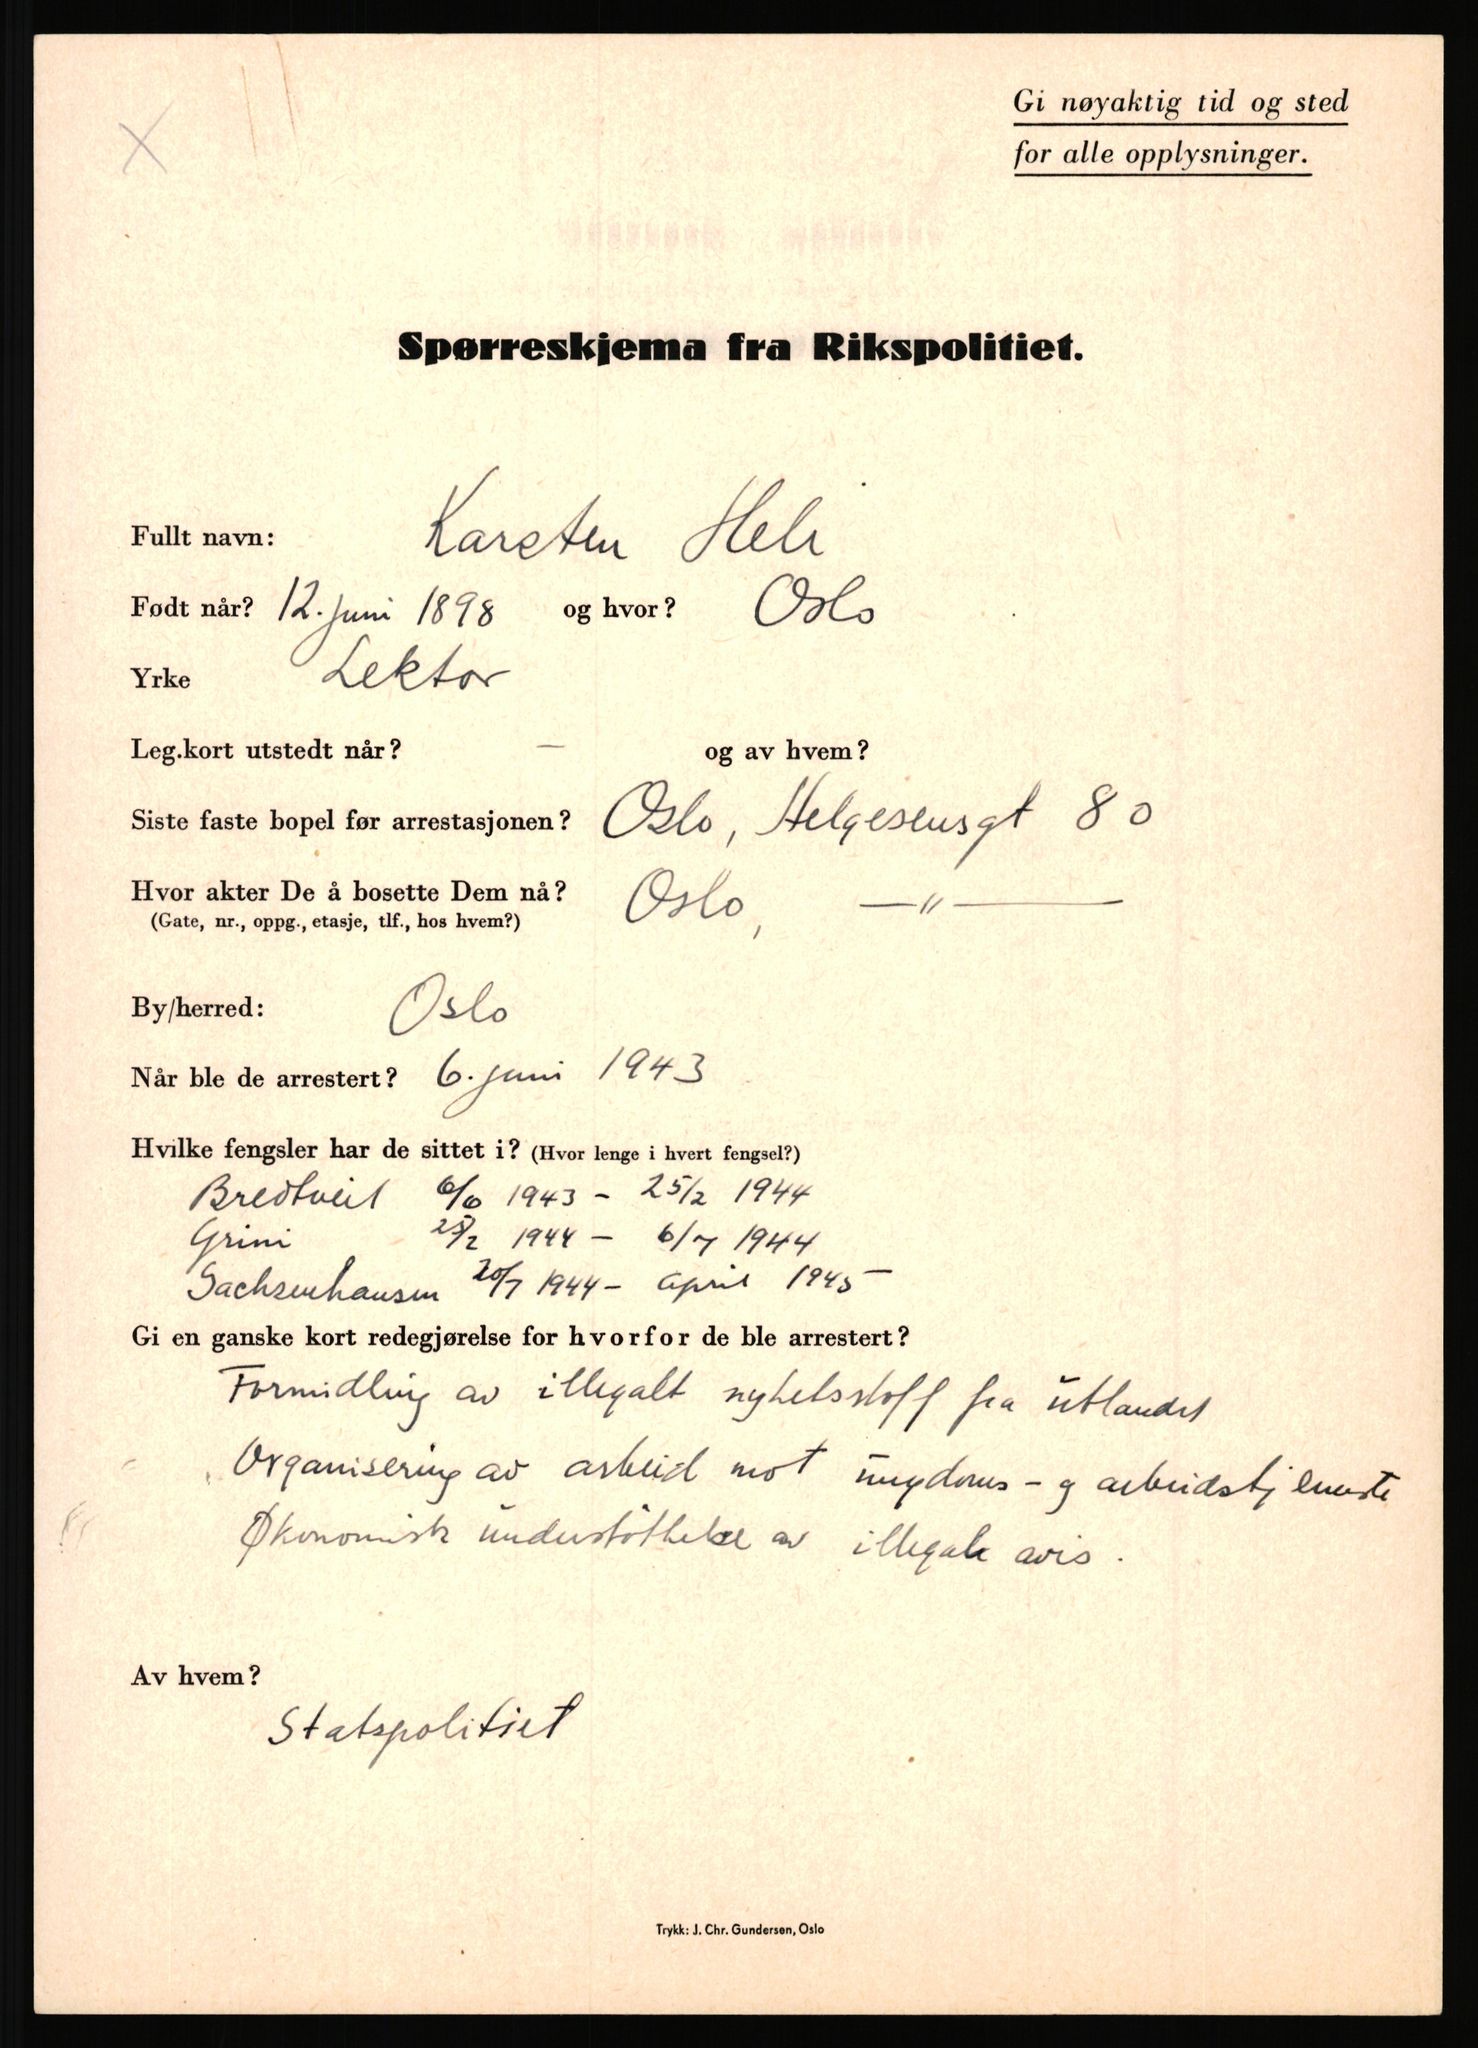 Gi nøyaktig tid og sted
for alle opplysninger.
Spørreskjema fra Rikspolitiet.
Fullt navn: Karsten Heli
Født når? 12. juni 1898 og hvor? Oslo
Yrke Lektor
Leg.kort utstedt når? — og av hvem?
Siste faste bopel før arrestasjonen? Oslo, Helgesensgt 80
Hvor akter De å bosette Dem nå? Oslo, —"—
(Gate, nr., oppg., etasje, tlf., hos hvem?)
By/herred: Oslo
Når ble de arrestert? 6. juni 1943
Hvilke fengsler har de sittet i? (Hvor lenge i hvert fengsel?)
Bredtveit 6/6 1943 – 25/2 1944
Grini 25/2 1944 – 6/7 1944
Sachsenhausen 20/7 1944 – april 1945
Gi en ganske kort redegjørelse for hvorfor de ble arrestert?
Formidling av illegalt nyhetsstoff fra utlandet
Organisering av arbeid mot ungdoms- og arbeidstjeneste
Økonomisk understøttelse av illegale avis.
Av hvem?
Statspolitiet
Trykk: J. Chr. Gundersen, Oslo